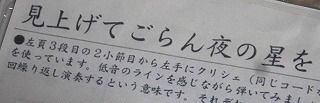 見上げてごらん夜の星を
●左頁3段目の2小節目から左手にクリシェ（同じコード
を使っています。低音のラインを感じながら弾いてみまし
回繰り返し演奏するという意味です。それ